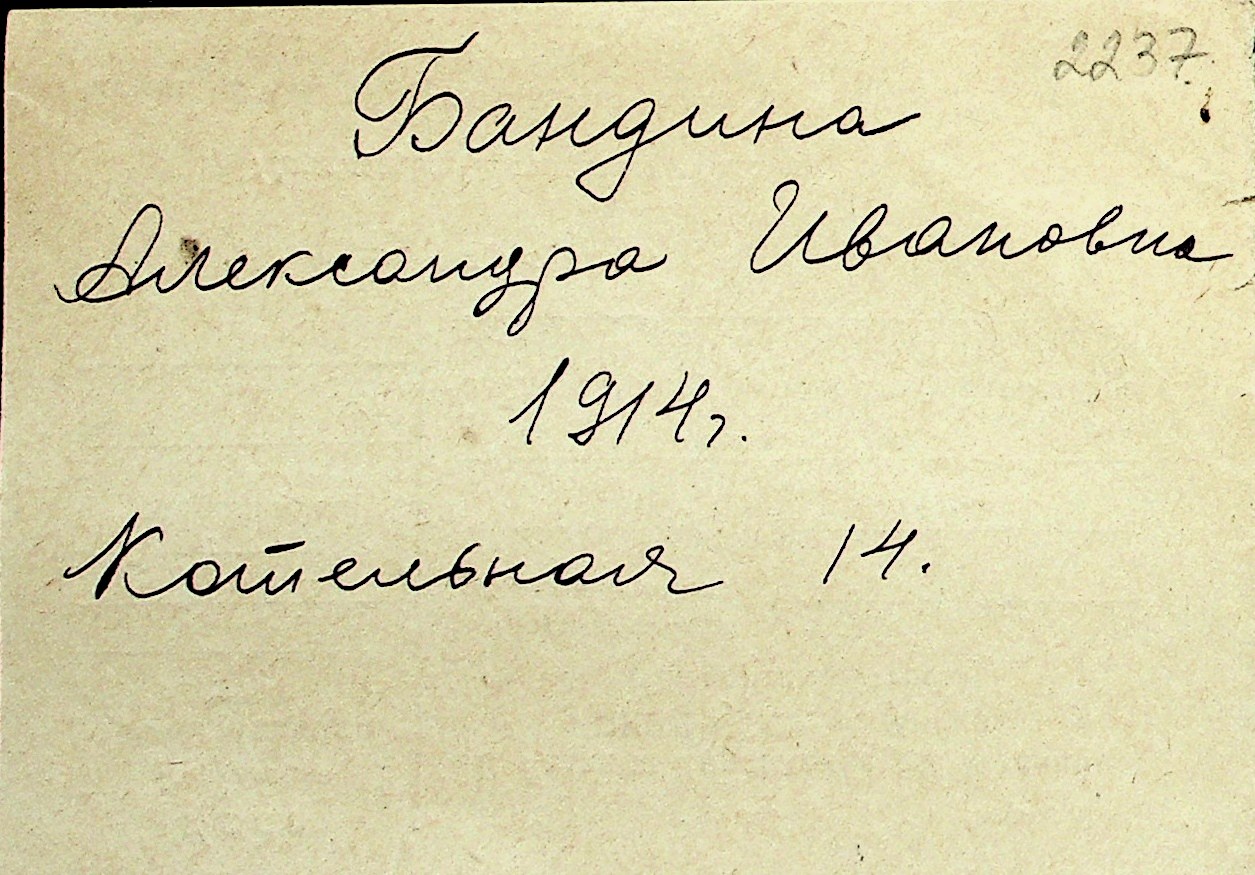 2237.
Бандина
Александра Ивановна
1914г.
Котельная 14.